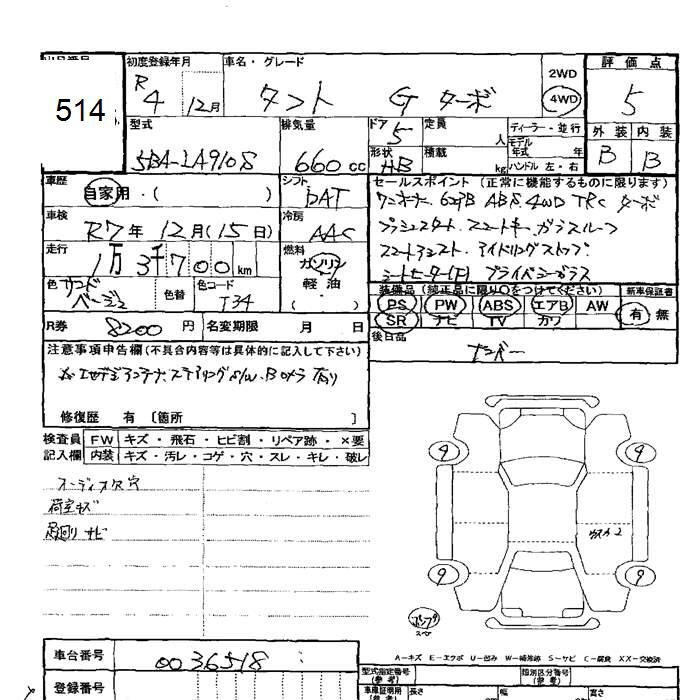 514
初度登録年月
R4 12月
車名・グレード
タント G ターボ
2WD
4WD
評価点
5
型式
5BA-LA910S
排気量
660cc
ドア
5
形状
HB
定員
人
積載
kg
ディーラー・並行
モデル年式 年
ハンドル 左・右
外装 内装
B B
車歴
自家用・( )
シフト
DAT
車検
R7年12月(15日)
冷房
AAC
走行
1万3千700km
燃料
ガソリン
軽油
( )
色
サンドベージュ
色替
色コード
T34
セールスポイント (正常に機能するものに限ります)
ワンオーナー 記録B ABS 4WD TRC ターボ
プッシュスタート スマートキー ガラスルーフ
スマートアシスト アイドリングストップ
シートヒーター(F) プライバシーガラス
装備品 (純正品に限り○をつけてください)
新車保証書
PS PW ABS エアB AW
SR ナビ TV カワ
有 無
R券 8200円
名変期限 月 日
後日品
ナンバー
注意事項申告欄(不具合内容等は具体的に記入して下さい)
ステアリングS/W. Bカメラ有り
修復歴 有 〔箇所 〕
検査員 FW キズ・飛石・ヒビ割・リペア跡・×要
記入欄 内装 キズ・汚レ・コゲ・穴・スレ・キレ・破レ
オーディオ欠穴
荷室キズ
足廻りサビ
9 9
9 9
A－キズ E－エクボ U－凹み W－補修跡 S－サビ C－腐食 XX－交換済
車台番号
0036518
登録番号
型式指定番号
(参考)
類別区分番号
(参考)
長さ 幅 高さ